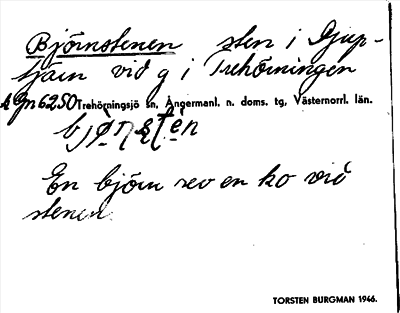 Björnstenen sten i Djup-
tjärn vid g i Trehörningen
Gn 6250 Trehörningsjö sn, Ångermanl. n. doms. tg, Västernorrl. län.
En björn rev en ko vid
stenen.
TORSTEN BURGMAN 1946.